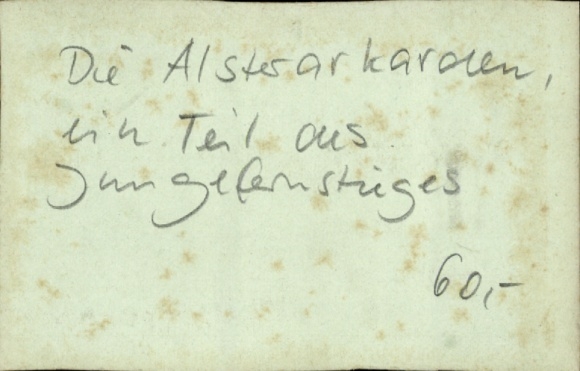 Die Alsterarkaden,
ein Teil des
Jungfernstieges
60,-